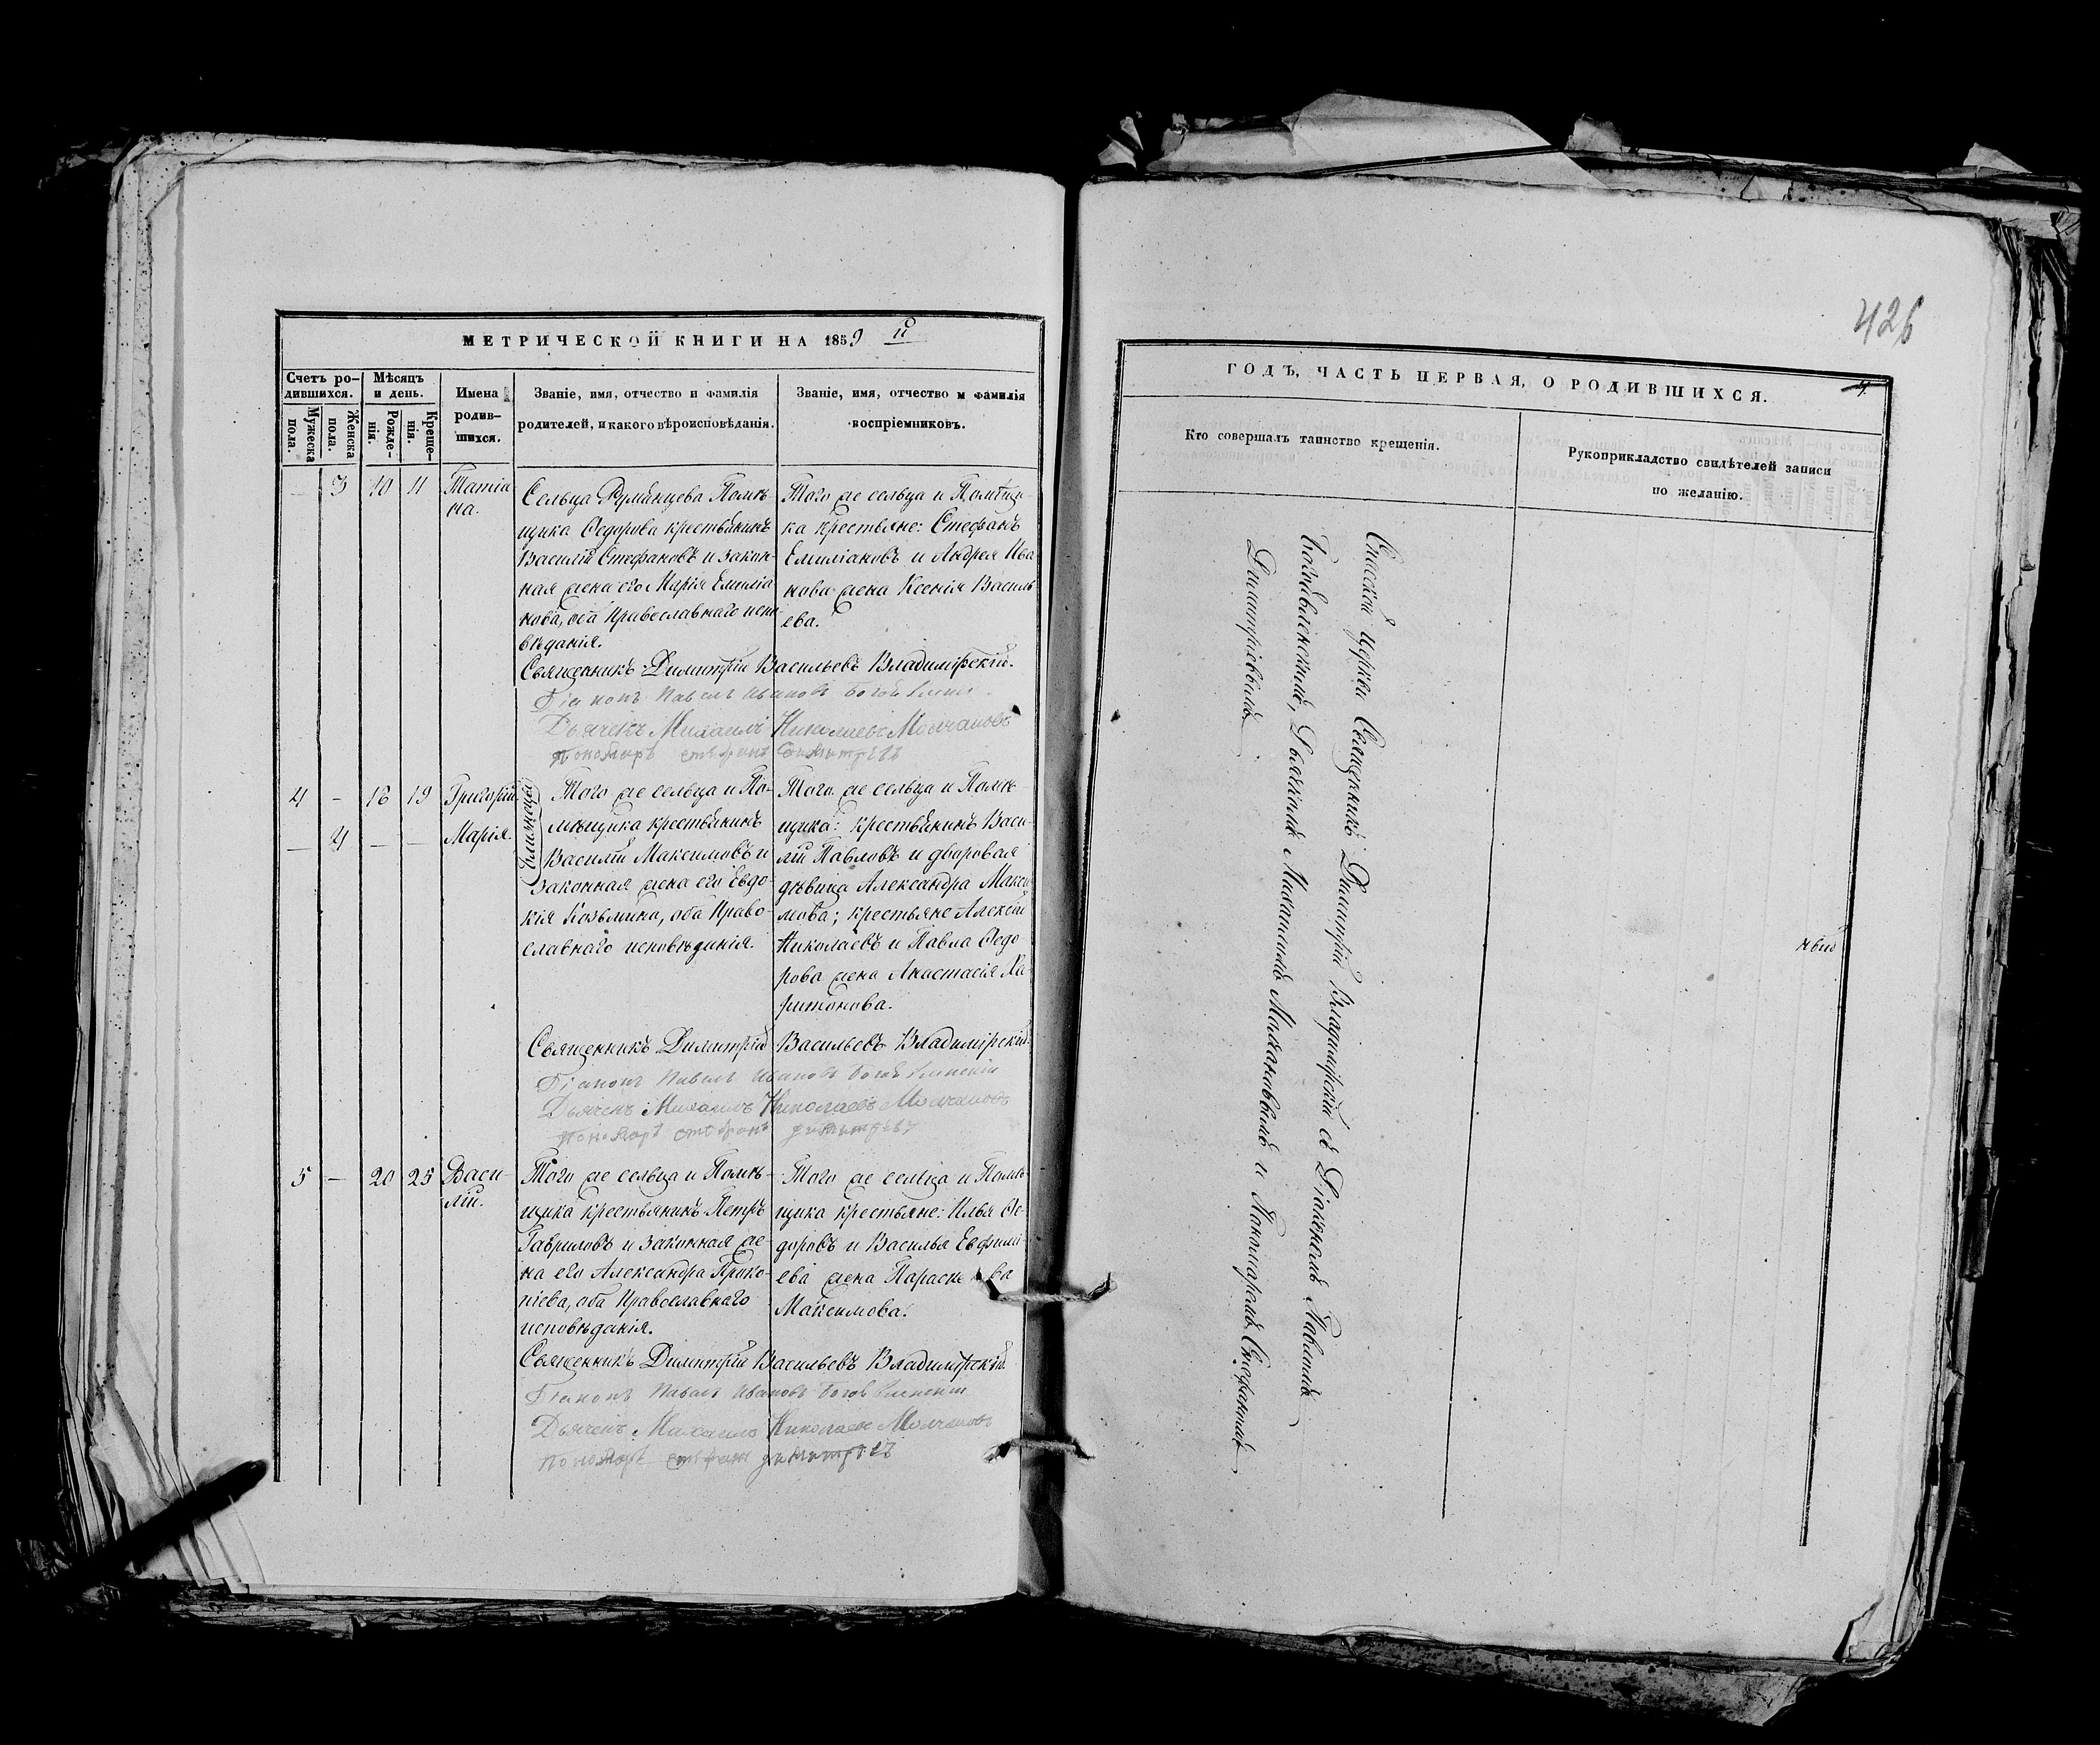 МЕТРИЧЕСКОЙ КНИГИ НА 1859 й
Счетъ ро-
дившихся.
Мужеска
пола.
Женска
пола.
Мѣсяцъ
и день.
Рожде-
нія.
Креще-
нія.
Имена
родив-
шихся.
Званіе, имя, отчество и фамилія
родителей, и какого вѣроисповѣданія.
Званіе, имя, отчество и фамилія
воспріемниковъ.
— 3 10 11
Татіа
на.
Сельца Румянцева Помѣ-
щика Ѳедорова крестьянинъ
Василій Стефановъ и закон-
ная жена его Марія Емиліа
нова, оба Православнаго испо-
вѣданія.
Того же сельца и Помѣщи-
ка крестьяне: Стефанъ
Емиліановъ и Андрея Ива
нова жена Ксенія Василь
ева.
Священникъ Димитрій Васильевъ Владимірскій.
Діаконъ Павелъ Ивановъ
Дьячекъ Михаилъ Николаевъ Молчановъ
Пономарь Стефанъ Димитріевъ
4 — 18 19
Григорій
— 4 — —
Марія.
Близнецы
Того же сельца и По-
мѣщика крестьянинъ
Василій Максимовъ и
законная жена его Евдо-
кія Козьмина, оба Право-
славнаго исповѣданія.
Того же сельца и Помѣ-
щика: крестьянинъ Васи-
лій Павловъ и дворовая
дѣвица Александра Макси
мова; крестьяне Алексій
Николаевъ и Павла Ѳедо
рова жена Анастасія Ха-
ритонова.
Священникъ Димитрій Васильевъ Владимірскій.
Діаконъ Павелъ Ивановъ Богоявленскій
Дьячекъ Михаилъ Николаевъ Молчановъ
Пономарь Стефанъ Димитріевъ
5 — 20 25
Васи-
лій.
Того же сельца и Помѣ-
щика крестьянинъ Петръ
Гавриловъ и законная же-
на его Александра Проко-
піева, оба Православнаго
исповѣданія.
Того же сельца и Помѣ-
щика крестьяне: Илья Ѳе-
доровъ и Василья Евфимі-
ева жена Параскева
Максимова.
Священникъ Димитрій Васильевъ Владимірскій.
Діаконъ Павелъ Ивановъ Богоявленскій
Дьячекъ Михаилъ Николаевъ Молчановъ
Пономарь Стефанъ Димитріевъ
426
ГОДЪ, ЧАСТЬ ПЕРВАЯ, О РОДИВШИХСЯ.
Кто совершалъ таинство крещенія.
Рукоприкладство свидѣтелей записи
по желанію.
Спаской церкви Священникъ Димитрій Владимірскій съ Діакономъ Павломъ
Богоявленскимъ, Дьячкомъ Михаиломъ Молчановымъ и Пономаремъ Стефаномъ
Димитріевымъ.